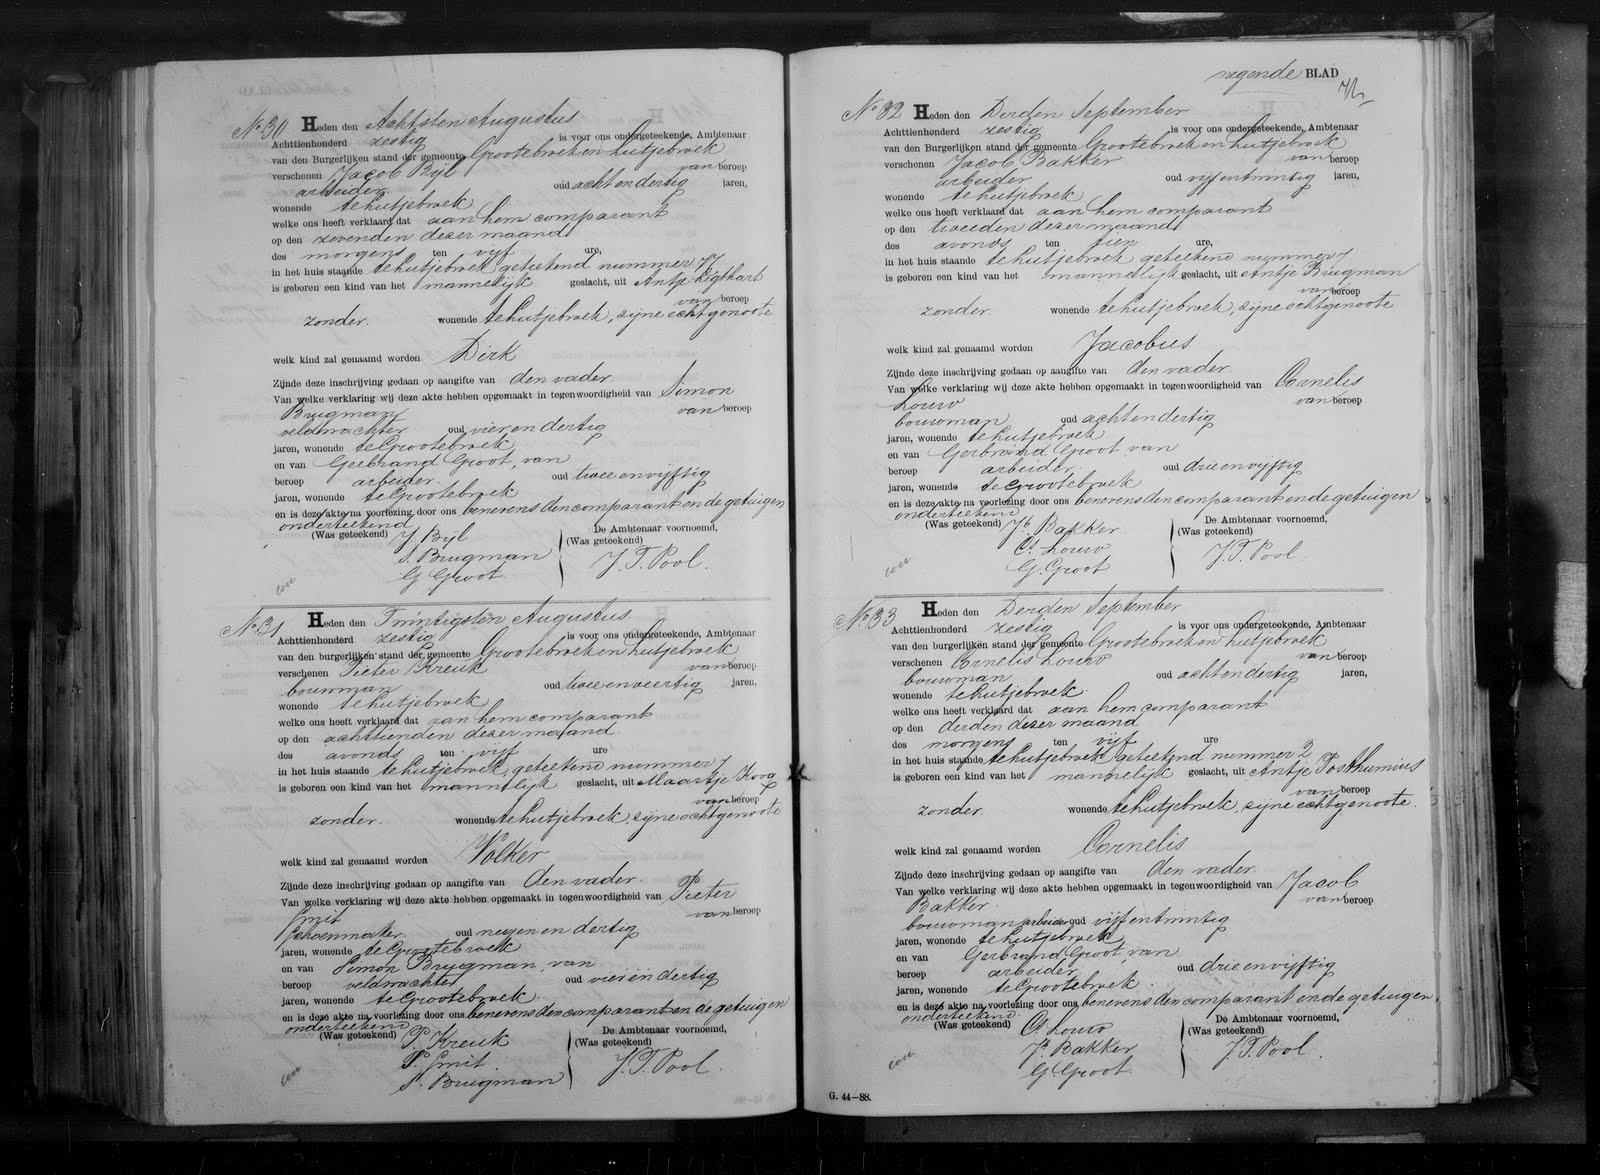 No 30 Heden den Achtsten Augustus
Achttienhonderd zestig is voor ons ondergeteekende, Ambtenaar
van den Burgerlijken stand der gemeente Grootebroek en Lutjebroek
verschenen Jacob Bijl van beroep
arbeider oud acht en dertig jaren,
wonende te Lutjebroek
welke ons heeft verklaard dat aan hem comparant
op den zevenden dezer maand
des morgens ten vijf ure,
in het huis staande te Lutjebroek geteekend nummer 77
is geboren een kind van het mannelijk geslacht, uit Antje Ligthart
van beroep
zonder. wonende te Lutjebroek, zijne echtgenoote
welk kind zal genaamd worden Dirk
Zijnde deze inschrijving gedaan op aangifte van den vader.
Van welke verklaring wij deze akte hebben opgemaakt in tegenwoordigheid van Simon
Brugman van beroep
veldwachter oud vier en dertig
jaren, wonende te Grootebroek
en van Gerbrand Groot, van
beroep arbeider. oud twee en vijftig
jaren, wonende te Grootebroek
en is deze akte na voorlezing door ons benevens den comparant en de getuigen
onderteekend
(Was geteekend) J Bijl
S. Brugman
G Groot.
De Ambtenaar voornoemd,
(Was geteekend)
J. T. Pool.
No 31 Heden den Twintigsten Augustus.
Achttienhonderd zestig is voor ons ondergeteekende, Ambtenaar
van den burgerlijken stand der gemeente Grootebroek en Lutjebroek
verschenen Pieter Kreuk van beroep
bouwman oud twee en veertig jaren,
wonende te Lutjebroek
welke ons heeft verklaard dat aan hem comparant
op den achttienden dezer maand.
des avonds ten vijf ure
in het huis staande te Lutjebroek, geteekend nummer 7
is geboren een kind van het mannelijk geslacht, uit Maartje Koog
van beroep
zonder. wonende te Lutjebroek, zijne echtgenoote
welk kind zal genaamd worden Volker
Zijnde deze inschrijving gedaan op aangifte van den vader.
Van welke verklaring wij deze akte hebben opgemaakt in tegenwoordigheid van Pieter
Smit van beroep
schoenmaker. oud negen en dertig
jaren, wonende te Grootebroek
en van Simon Brugman, van
beroep veldwachter oud vier en dertig
jaren, wonende te Grootebroek.
en is deze akte na voorlezing door ons benevens den comparant en de getuigen
onderteekend
(Was geteekend) P. Kreuk
P. Smit.
S. Brugman
De Ambtenaar voornoemd,
(Was geteekend)
J. T. Pool.
negende BLAD
No 32 Heden den Derden September
Achttienhonderd zestig is voor ons ondergeteekende, Ambtenaar
van den Burgerlijken stand der gemeente Grootebroek en Lutjebroek
verschenen Jacob Bakker van beroep
arbeider oud vijf en twintig jaren,
wonende te Lutjebroek
welke ons heeft verklaard dat aan hem comparant
op den tweeden dezer maand
des avonds ten tien ure,
in het huis staande te Lutjebroek geteekend nummer 7
is geboren een kind van het mannelijk geslacht, uit Antje Brugman
van beroep
zonder. wonende te Lutjebroek, zijne echtgenoote
welk kind zal genaamd worden Jacobus
Zijnde deze inschrijving gedaan op aangifte van den vader.
Van welke verklaring wij deze akte hebben opgemaakt in tegenwoordigheid van Cornelis
Louw van beroep
bouwman oud acht en dertig
jaren, wonende te Lutjebroek
en van Gerbrand Groot, van
beroep arbeider. oud drie en vijftig
jaren, wonende te Grootebroek
en is deze akte na voorlezing door ons benevens den comparant en de getuigen
onderteekend
(Was geteekend) Jb. Bakker
Cs. Louw
G. Groot
De Ambtenaar voornoemd,
(Was geteekend)
J. T. Pool.
No. 33 Heden den Derden September
Achttienhonderd zestig is voor ons ondergeteekende, Ambtenaar
van den burgerlijken stand der gemeente Grootebroek en Lutjebroek
verschenen Cornelis Louw van beroep
bouwman oud acht en dertig jaren,
wonende te Lutjebroek.
welke ons heeft verklaard dat aan hem comparant
op den derden dezer maand
des morgens ten vijf ure
in het huis staande te Lutjebroek geteekend nummer 2
is geboren een kind van het mannelijk geslacht, uit Antje Posthumius
van beroep
zonder. wonende te Lutjebroek, zijne echtgenoote.
welk kind zal genaamd worden Cornelis
Zijnde deze inschrijving gedaan op aangifte van den vader.
Van welke verklaring wij deze akte hebben opgemaakt in tegenwoordigheid van Jacob
Bakker. van beroep
bouwman arbeider oud vijf en twintig
jaren, wonende te Lutjebroek
en van Gerbrand Groot, van
beroep arbeider oud drie en vijftig
jaren, wonende te Grootebroek.
en is deze akte na voorlezing door ons benevens den comparant en de getuigen.
onderteekend.
(Was geteekend) Cs. Louw
Jb. Bakker
G. Groot.
De Ambtenaar voornoemd,
(Was geteekend)
J. T. Pool.
G. 44—88.